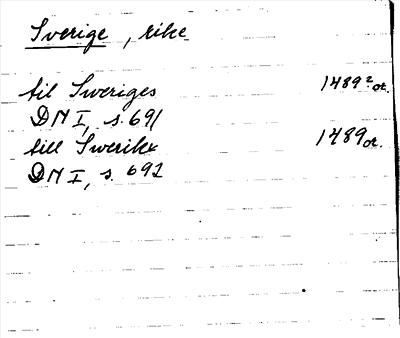 Sverige, rike
til Sweriges 1489² or.
DN I, s. 691
till Swerikx 1489 or.
DN I, s. 692